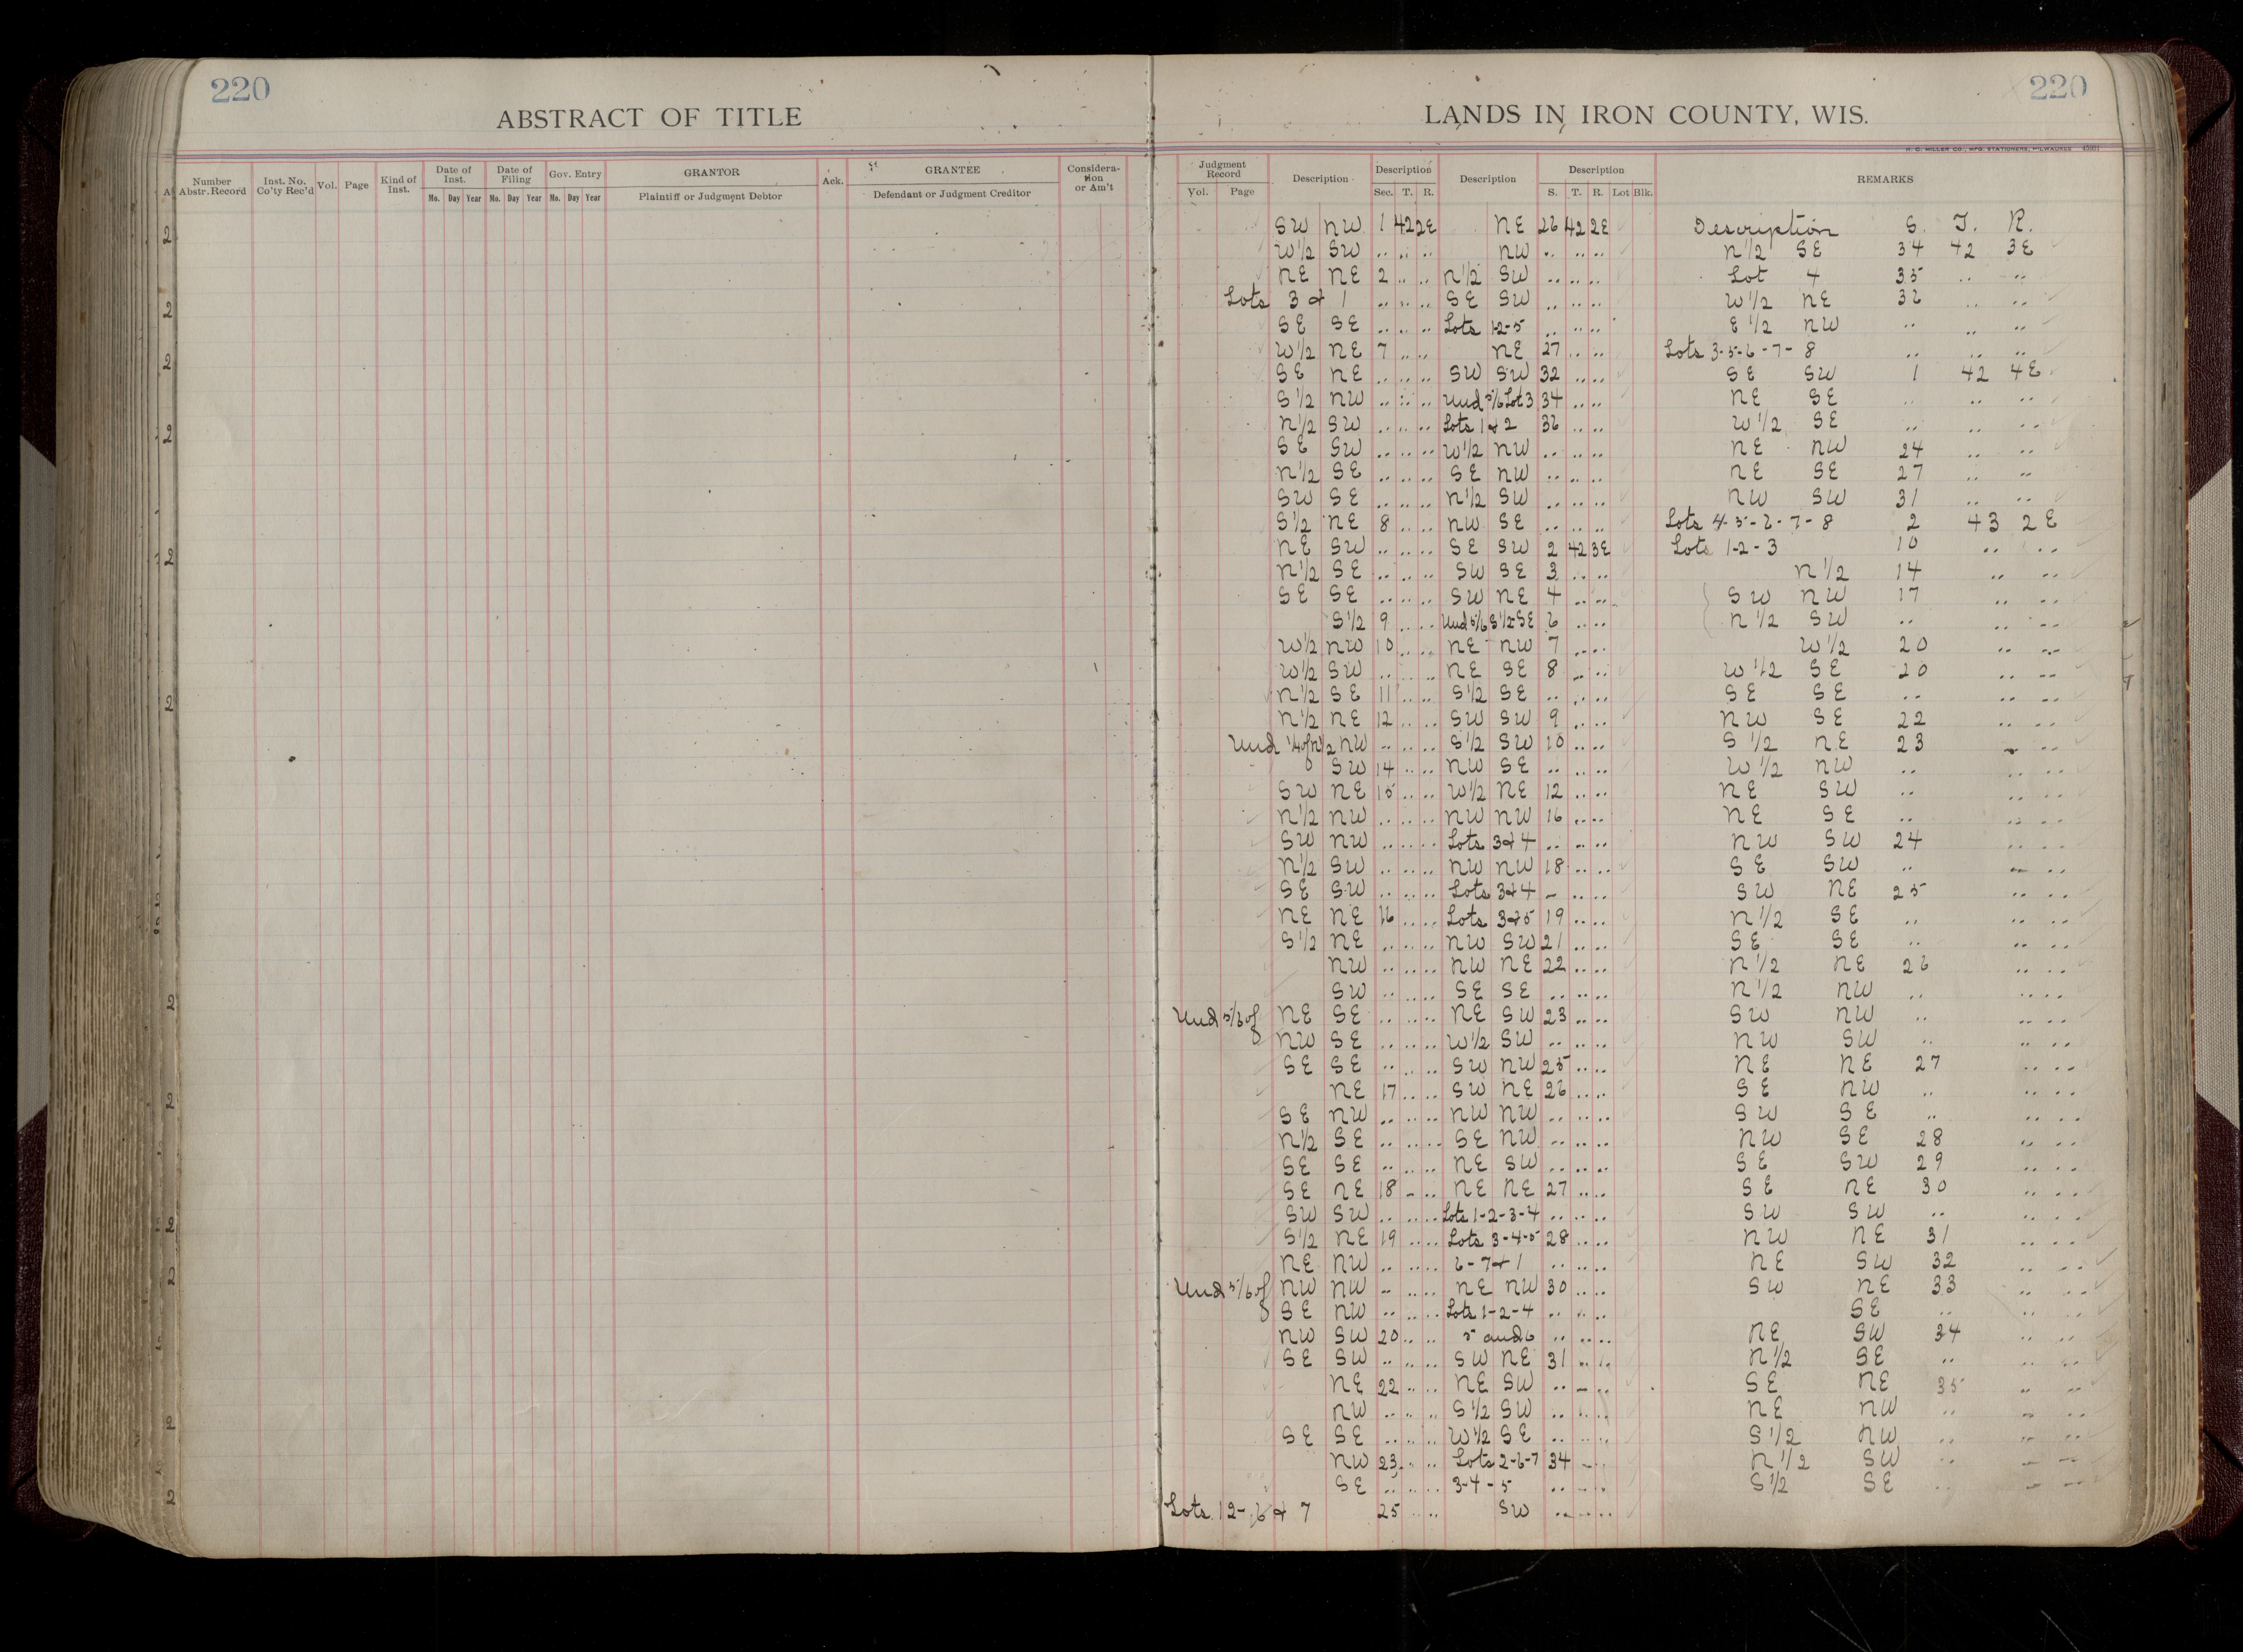 220 220
ABSTRACT OF TITLE LANDS IN IRON COUNTY, WIS.
H. C. MILLER CO., MFG. STATIONERS, MILWAUKEE
Number Abstr. Record Inst. No. Co'ty Rec'd Vol. Page Kind of Inst. Date of Inst. Mo. Day Year Date of Filing Mo. Day Year Gov. Entry Mo. Day Year GRANTOR Plaintiff or Judgment Debtor Ack. GRANTEE Defendant or Judgment Creditor Considera-tion or Am't Judgment Record Vol. Page Description Description Sec. T. R. Description Description S. T. R. Lot Blk. REMARKS
SW NW 1 42 2E NE 26 42 2E Description S. T. R.
W½ SW .. .. .. NW .. .. .. N½ SE 34 42 3E
NE NE 2 .. .. N½ SW .. .. .. Lot 4 35 .. ..
Lots 3 & 1 .. .. .. SE SW .. .. .. W½ NE 36 .. ..
SE SE .. .. .. Lots 1-2-5 .. .. .. E½ NW .. .. ..
W½ NE 7 .. .. NE 27 .. .. Lots 3-5-6-7-8 .. .. ..
SE NE .. .. .. SW SW 32 .. .. SE SW 1 42 4E
S½ NW .. .. .. Und 5/6 Lot 3 34 .. .. NE SE .. .. ..
N½ SW .. .. .. Lots 1 & 2 36 .. .. W½ SE .. .. ..
SE SW .. .. .. W½ NW .. .. .. NE NW 24 .. ..
N½ SE .. .. .. SE NW .. .. .. NE SE 27 .. ..
SW SE .. .. .. N½ SW .. .. .. NW SW 31 .. ..
S½ NE 8 .. .. NW SE .. .. .. Lots 4-5-6-7-8 2 43 2E
NE SW .. .. .. SE SW 2 42 3E Lots 1-2-3 10 .. ..
N½ SE .. .. .. SW SE 3 .. .. N½ 14 .. ..
SE SE .. .. .. SW NE 4 .. .. SW NW 17 .. ..
S½ 9 .. .. Und 5/6 S½ SE 6 .. .. N½ SW .. .. ..
W½ NW 10 .. .. NE NW 7 .. .. W½ 20 .. ..
W½ SW .. .. .. NE SE 8 .. .. W½ SE 20 .. ..
N½ SE 11 .. .. S½ SE .. .. .. SE SE .. .. ..
N½ NE 12 .. .. SW SW 9 .. .. NW SE 22 .. ..
Und ¼ of N½ NW .. .. .. S½ SW 10 .. .. S½ NE 23 .. ..
SW 14 .. .. NW SE .. .. .. W½ NW .. .. ..
SW NE 15 .. .. W½ NE 12 .. .. NE SW .. .. ..
N½ NW .. .. .. NW NW 16 .. .. NE SE .. .. ..
SW NW .. .. .. Lots 3 & 4 .. .. .. NW SW 24 .. ..
N½ SW .. .. .. NW NW 18 .. .. SE SW .. .. ..
SE SW .. .. .. Lots 3 & 4 .. .. .. SW NE 25 .. ..
NE NE 16 .. .. Lots 3 & 5 19 .. .. N½ SE .. .. ..
S½ NE .. .. .. NW SW 21 .. .. SE SE .. .. ..
NW .. .. .. NW NE 22 .. .. N½ NE 26 .. ..
SW .. .. .. SE SE .. .. .. N½ NW .. .. ..
Und 5/3 of NE SE .. .. .. NE SW 23 .. .. SW NW .. .. ..
NW SE .. .. .. W½ SW .. .. .. NW SW .. .. ..
SE SE .. .. .. SW NW 25 .. .. NE NE 27 .. ..
NE 17 .. .. SW NE 26 .. .. SE NW .. .. ..
SE NW .. .. .. NW NW .. .. .. SW SE .. .. ..
N½ SE .. .. .. SE NW .. .. .. NW SE 28 .. ..
SE SE .. .. .. NE SW .. .. .. SE SW 29 .. ..
SE NE 18 .. .. NE NE 27 .. .. SE NE 30 .. ..
SW SW .. .. .. Lots 1-2-3-4 .. .. .. SW SW .. .. ..
S½ NE 19 .. .. Lots 3-4-5 28 .. .. NW NE 31 .. ..
NE NW .. .. .. 6-7 & 1 .. .. .. NE SW 32 .. ..
Und 5/6 of NW NW .. .. .. NE NW 30 .. .. SW NE 33 .. ..
SE NW .. .. .. Lots 1-2-4 .. .. .. SE .. .. ..
NW SW 20 .. .. 5 and 6 .. .. .. NE SW 34 .. ..
SE SW .. .. .. SW NE 31 .. .. N½ SE .. .. ..
NE 22 .. .. NE SW .. .. .. SE NE 35 .. ..
NW .. .. .. S½ SW .. .. .. NE NW .. .. ..
SE SE .. .. .. W½ SE .. .. .. S½ NW .. .. ..
NW 23 .. .. Lots 2-6-7 34 .. .. N½ SW .. .. ..
SE .. .. .. 3-4-5 .. .. .. S½ SE .. .. ..
Lots 1 2-6 & 7 25 .. .. SW .. .. ..